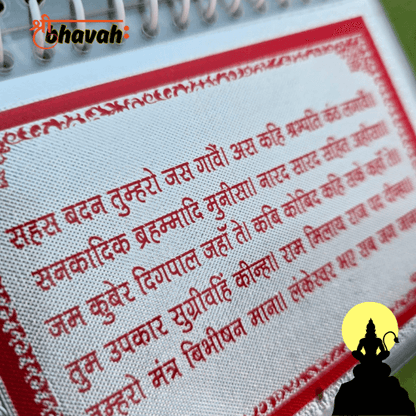 श्री
bhavah:
सहस बदन तुम्हरो जस गावैं। अस कहि श्रीपति कंठ लगावैं॥
सनकादिक ब्रह्मादि मुनीसा। नारद सारद सहित अहीसा॥
जम कुबेर दिगपाल जहाँ ते। कबि कोबिद कहि सके कहाँ ते॥
तुम उपकार सुग्रीवहिं कीन्हा। राम मिलाय राज पद दीन्हा॥
तुम्हरो मंत्र बिभीषन माना। लंकेस्वर भए सब जग